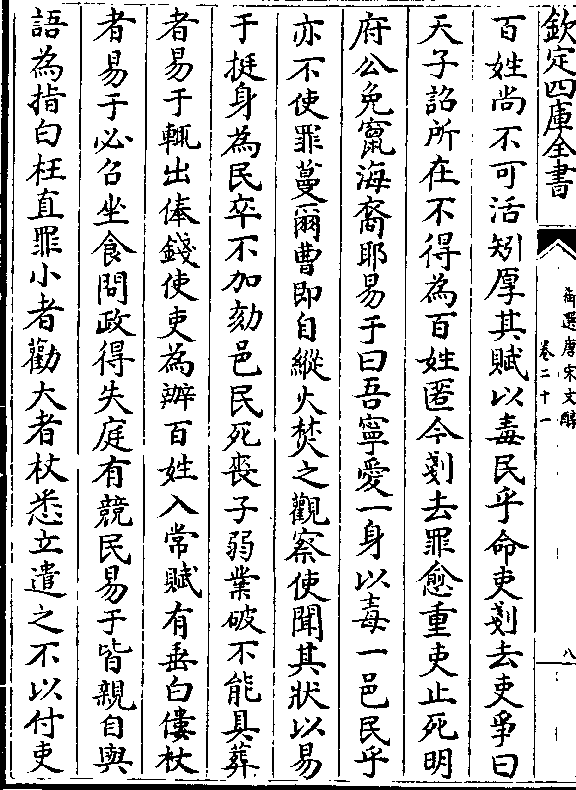 欽定四庫全書
御選唐宋文醇
卷二十一
八
百姓尚不可活矧厚其賦以毒民乎命吏剗去吏爭曰
天子詔所在不得為百姓匿今剗去罪愈重吏止死明
府公免竄海裔耶易于曰吾寧愛一身以毒一邑民乎
亦不使罪蔓爾曹即自縱火焚之觀察使聞其狀以易
于挺身為民卒不加劾邑民死喪子弱業破不能具葬
者易于輒出俸錢使吏為辦百姓入常賦有垂白僂杖
者易于必召坐食問政得失庭有競民易于皆親自與
語為指白枉直罪小者勸大者杖悉立遣之不以付吏